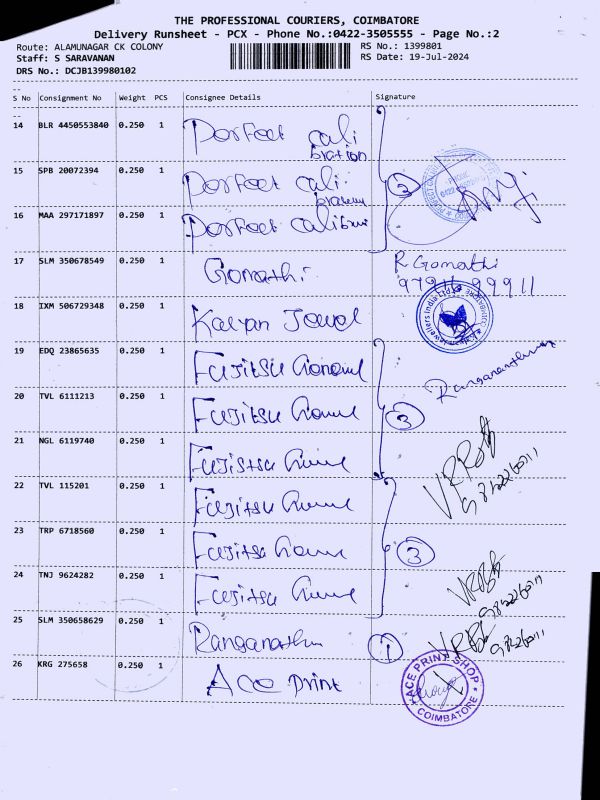 THE PROFESSIONAL COURIERS, COIMBATORE
Delivery Runsheet - PCX - Phone No.:0422-3505555 - Page No.:2
Route: ALAMUNAGAR CK COLONY RS No.: 1399801
Staff: S SARAVANAN RS Date: 19-Jul-2024
DRS No.: DCJB139980102
S No Consignment No Weight PCS Consignee Details Signature
14 BLR 4450553840 0.250 1 Perfect cali
bration
15 SPB 20072394 0.250 1 Perfect cali
3
16 MAA 297171897 0.250 1 Perfect
17 SLM 350678549 0.250 1 Gomathi R Gomathi
18 IXM 506729348 0.250 1 Kalyan Jewel
Jewellers India Ltd
19 EDQ 23865635 0.250 1 Fujitsu General
20 TVL 6111213 0.250 1 Fujitsu 3
21 NGL 6119740 0.250 1 Fujitsu
22 TVL 115201 0.250 1 Fujitsu
23 TRP 6718560 0.250 1 Fujitsu 3
24 TNJ 9624282 0.250 1 Fujitsu
25 SLM 350658629 0.250 1 Ranganathan 1
26 KRG 275658 0.250 1 Ace Print
ACE PRINT SHOP
COIMBATORE